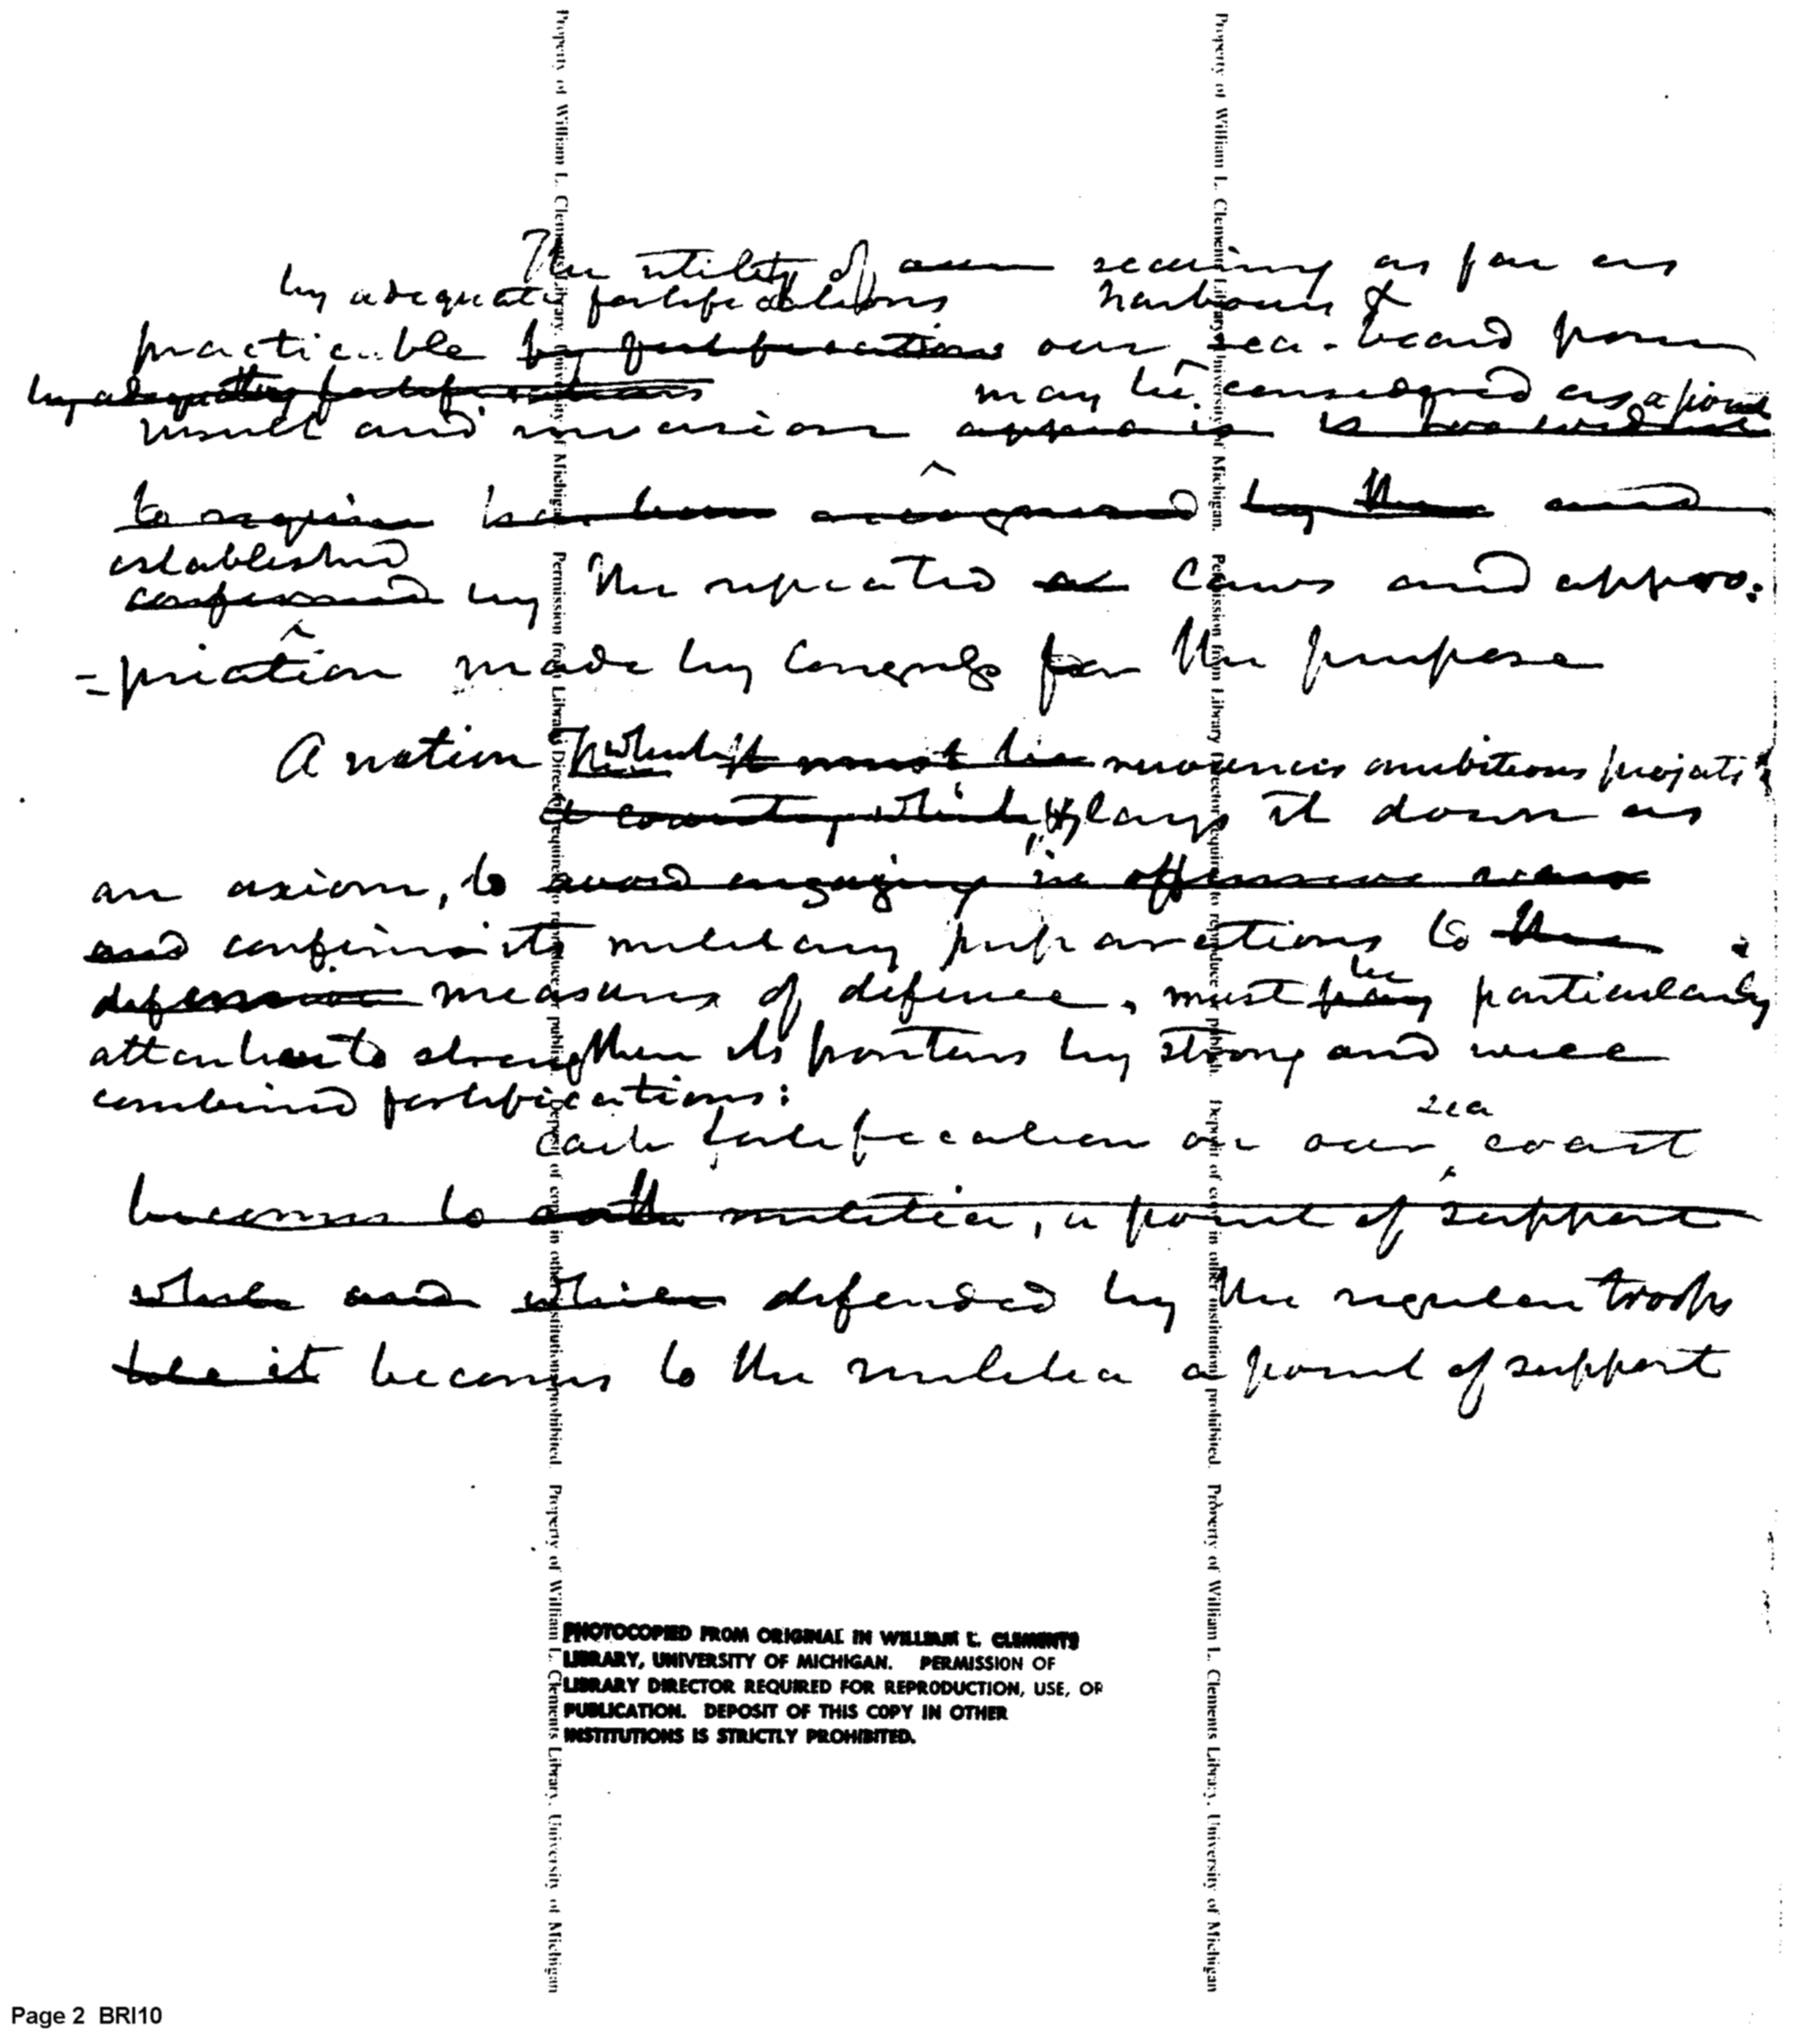 The utility of securing as far as
by adequate fortifications harbours &
practicable by fortifications our sea-board from
by adequate fortifications may be considered as a point
insult and invasion appears is is too evident
to require has been recognised by the and
established
confirmed by the repeated laws and appro:
=priation made by Congress for the purpose
A nation which it must be renounces ambitious projects &
a country which lays it down as
an axiom, to avoid engaging in offensive wars
and confine its military preparations to the
defensive measures of defence, must be particularly
attentive to strengthen its frontiers by strong and well
combined fortifications:
sea
each fortification on our coast
becomes to the militia, a point of support
while and which defended by the regular troops
it becomes to the militia a point of support
PHOTOCOPIED FROM ORIGINAL IN WILLIAM L. CLEMENTS
LIBRARY, UNIVERSITY OF MICHIGAN. PERMISSION OF
LIBRARY DIRECTOR REQUIRED FOR REPRODUCTION, USE, OR
PUBLICATION. DEPOSIT OF THIS COPY IN OTHER
INSTITUTIONS IS STRICTLY PROHIBITED.
Property of William L. Clements Library, University of Michigan. Permission from Library Director required to reproduce or publish. Deposit of copy in other institutions prohibited. Property of William L. Clements Library, University of Michigan
Property of William L. Clements Library, University of Michigan. Permission from Library Director required to reproduce or publish. Deposit of copy in other institutions prohibited. Property of William L. Clements Library, University of Michigan
Page 2 BRI10